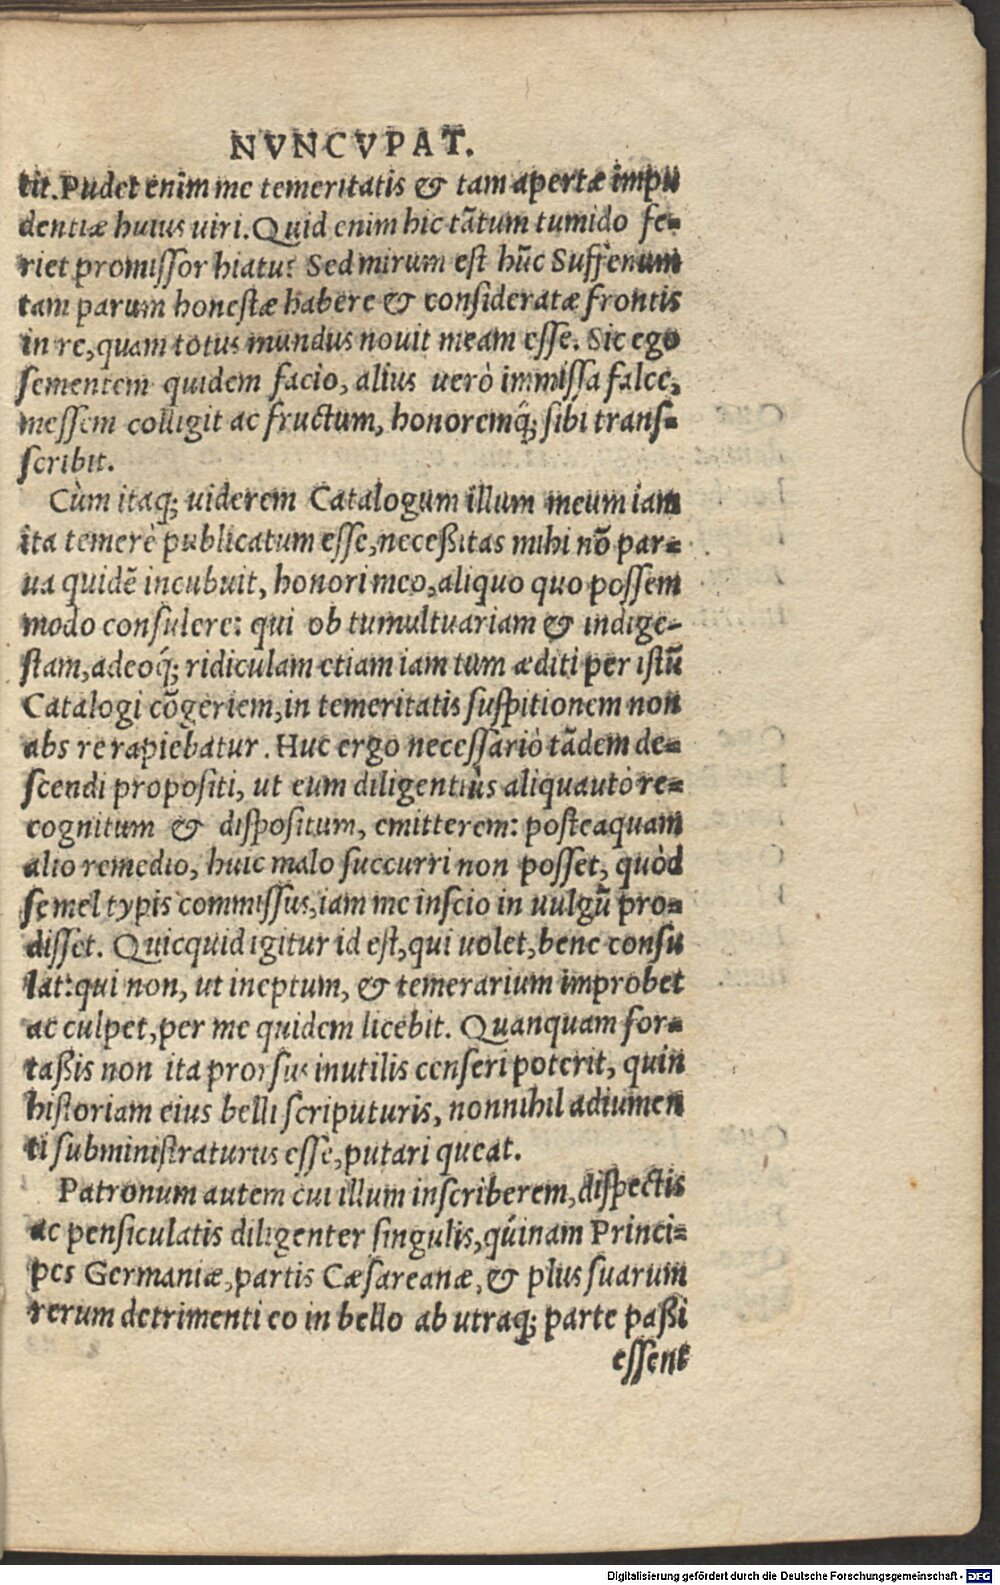 NVNCVPAT.
tit. Pudet enim me temeritatis & tam apertæ impu
dentiæ huius uiri. Quid enim hic tãtum tumido fe-
riet promissor hiatu? Sed mirum est hũc Suffenum
tam parum honestæ habere & consideratæ frontis
in re, quam totus mundus nouit meam esse. Sic ego
sementem quidem facio, alius uerò immissa falce,
messem colligit ac fructum, honoremq́; sibi trans-
scribit.
Cùm itaq; uiderem Catalogum illum meum iam
ita temerè publicatum esse, neceßitas mihi nõ par-
ua quidẽ incubuit, honori meo, aliquo quo possem
modo consulere: qui ob tumultuariam & indige-
stam, adeoq́; ridiculam etiam iam tum æditi per istũ
Catalogi cõgeriem, in temeritatis suspitionem non
abs re rapiebatur. Huc ergo necessariò tãdem de-
scendi propositi, ut eum diligentiùs aliquautò re-
cognitum & dispositum, emitterem: posteaquam
alio remedio, huic malo succurri non posset, quòd
semel typis commissus, iam me inscio in uulgũ pro-
disset. Quicquid igitur id est, qui uolet, bene consu
lat: qui non, ut ineptum, & temerarium improbet
ac culpet, per me quidem licebit. Quanquam for-
taßis non ita prorsus inutilis censeri poterit, quin
historiam eius belli scriputuris, nonnihil adiumen
ti subministraturus esse, putari queat.
Patronum autem cui illum inscriberem, dispectis
ac pensiculatis diligenter singulis, qúinam Princi-
pes Germaniæ, partis Cæsareanæ, & plus suarum
rerum detrimenti eo in bello ab utraq; parte paßi
essent
Digitalisierung gefördert durch die Deutsche Forschungsgemeinschaft - DFG